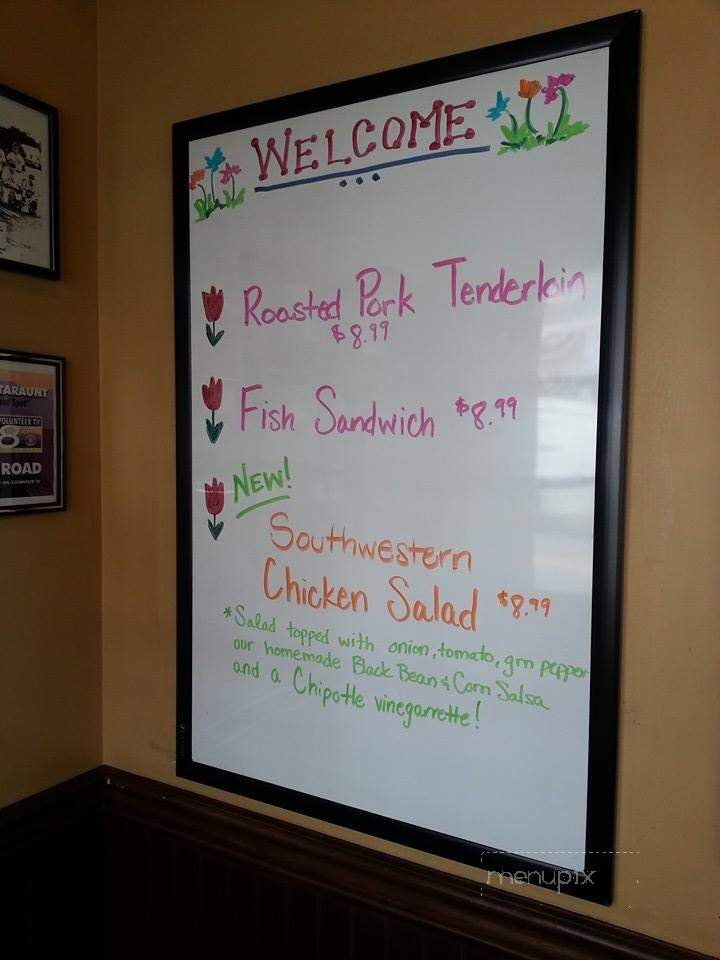 WELCOME
Roasted Pork Tenderloin
$8.99
Fish Sandwich $8.99
NEW!
Southwestern
Chicken Salad $8.99
*Salad topped with onion, tomato, grn pepper
our homemade Black Bean & Corn Salsa
and a Chipotle vinegarrette!
TARAUNT
VOLUNTEER TV
8
ROAD
ON VOLUNTEER TV
menupix